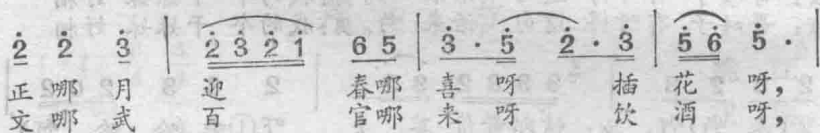 2̇ 2̇ 3̇ | 2̇ 3̇ 2̇ 1̇ 6 5 | 3̇ · 5̇ 2̇ · 3̇ | 5̇ 6̇ 5̇ · |
正 哪 月 迎 春哪 喜 呀 插 花 呀,
文 哪 武 百 官哪 来 呀 饮 酒 呀,